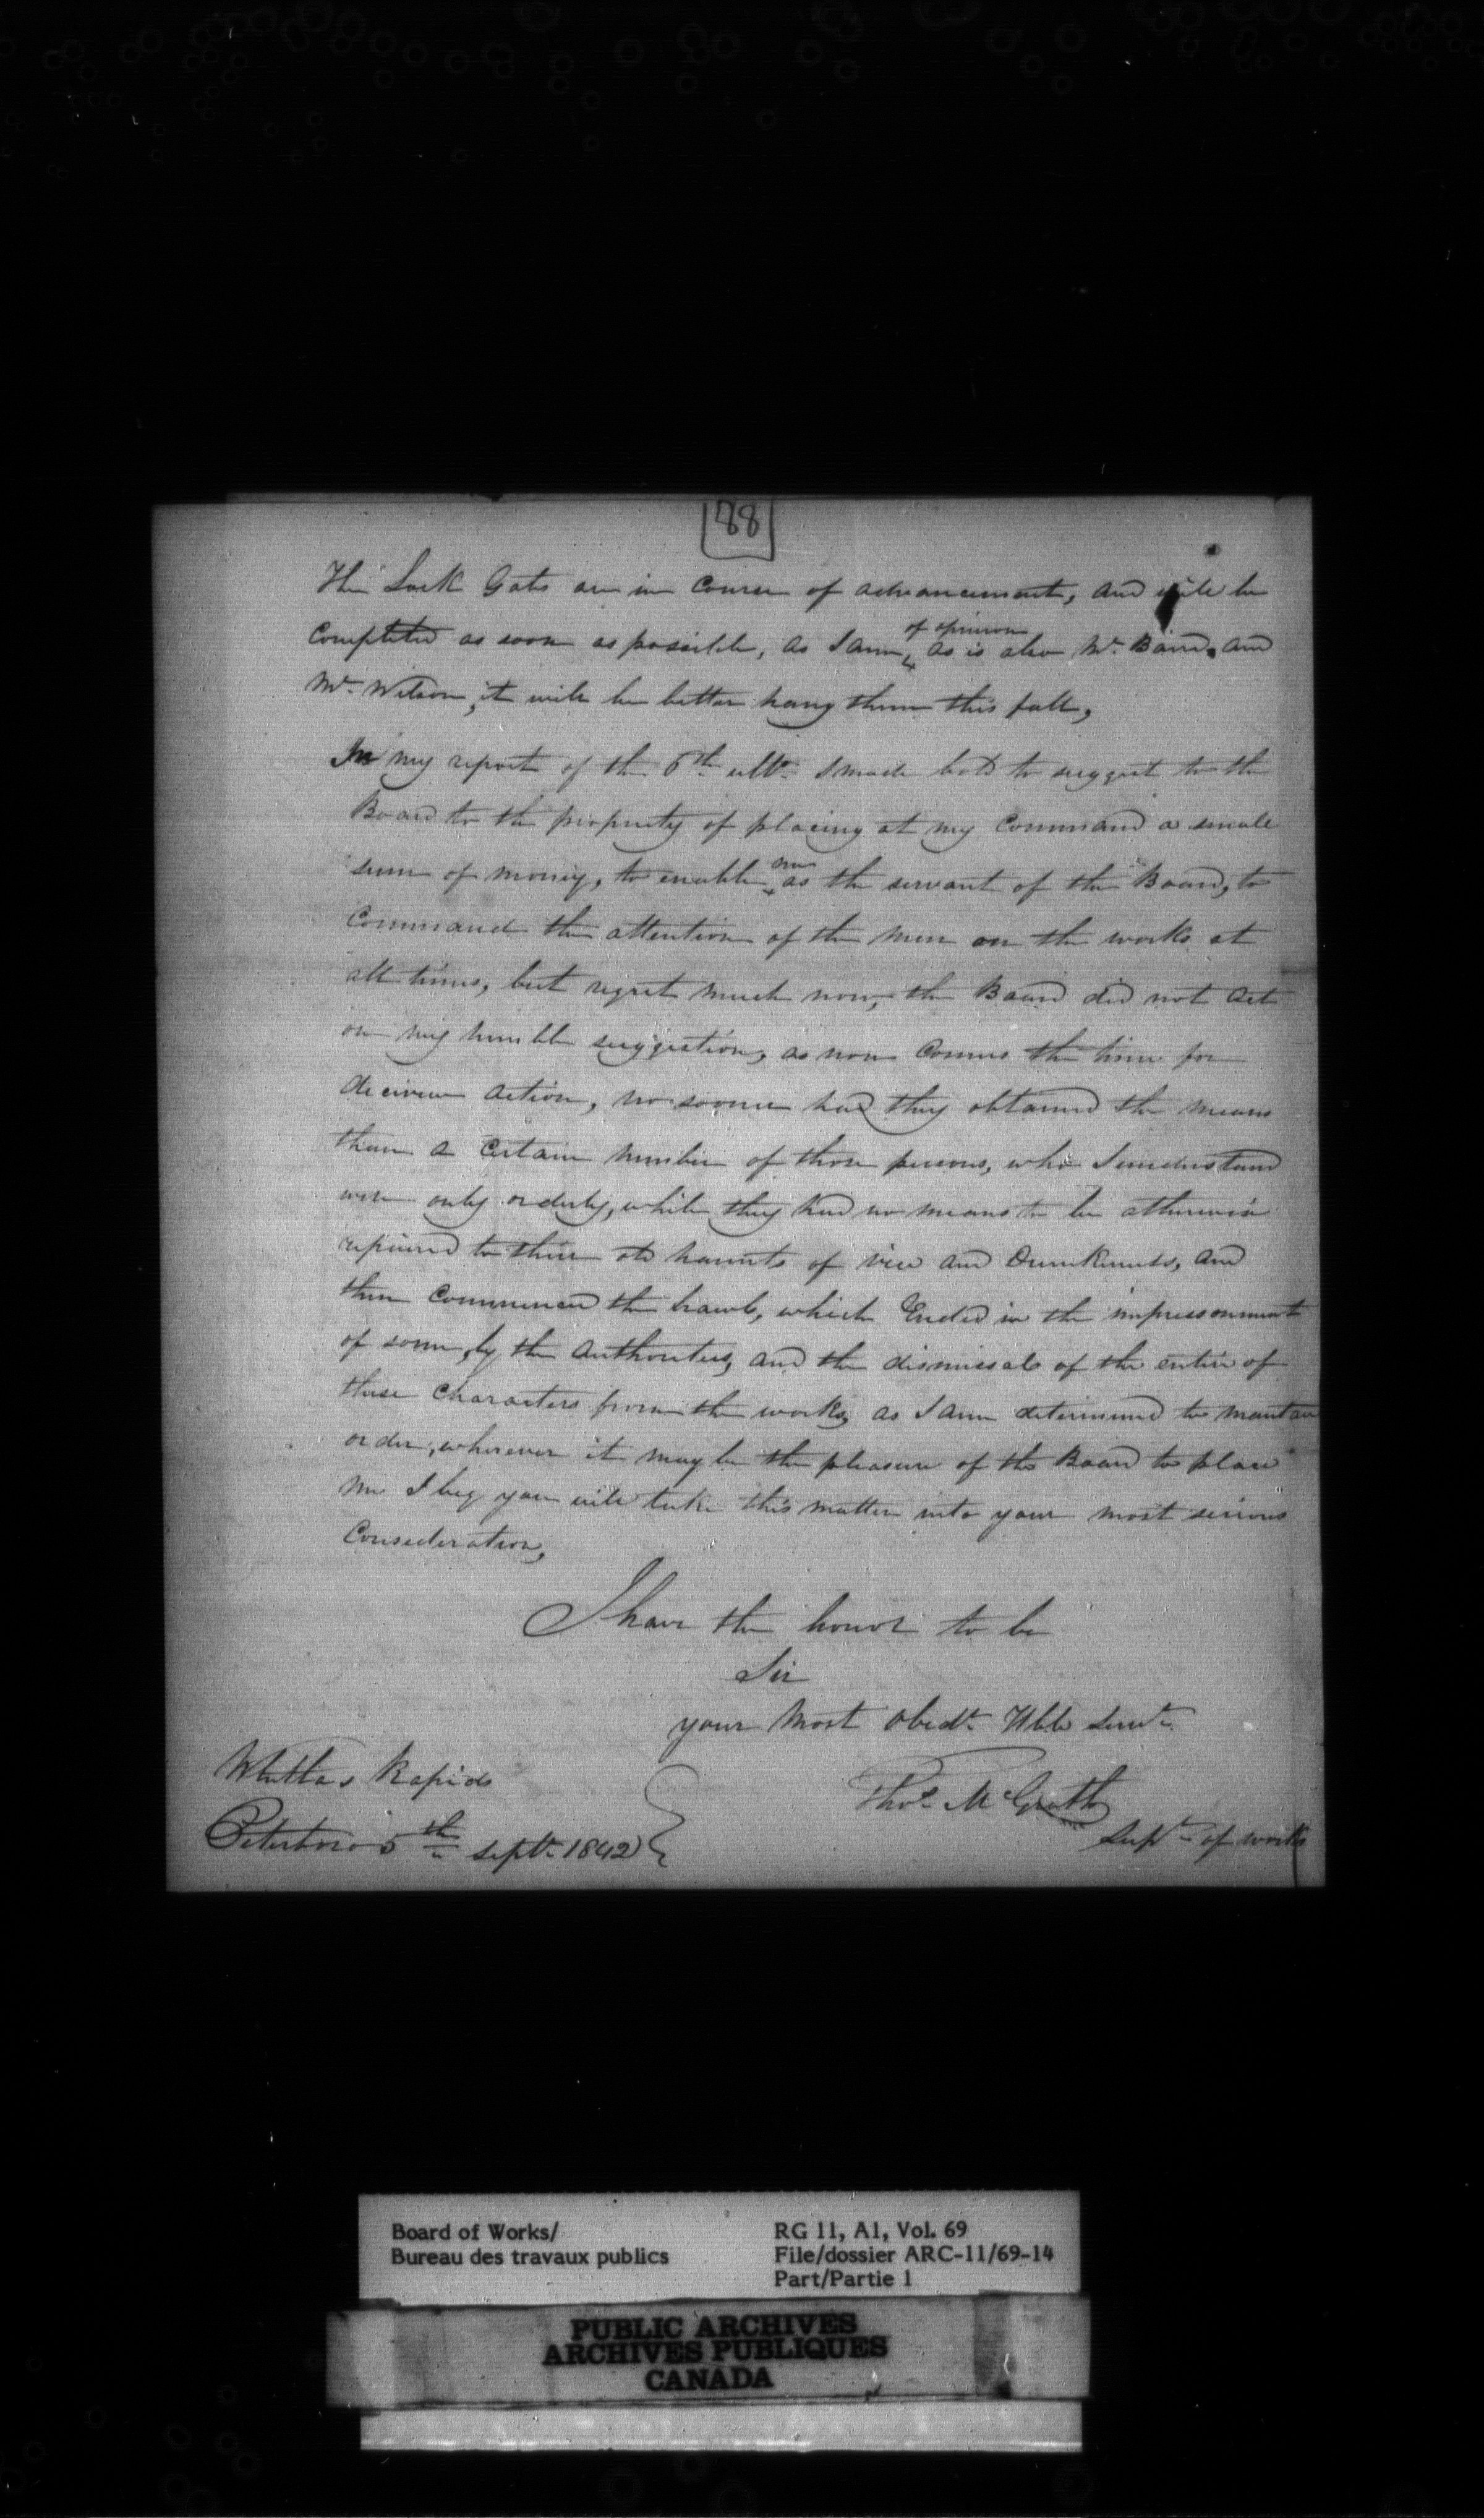 88
The Lock Gates are in Course of advancement, and will be
of opinion
Completed as soon as possible, as I am as is also Mr. Baird, and
Mr. Wilson, it will be better hang them this fall,
In my report of the 6th ulto. I made bold to suggest to the
Board to the propriety of placing at my Command a small
me
sum of money, to enable as the servant of the Board, to
Command the attention of the men on the works at
all times, but regret much now, the Board did not act
on my humble suggestion, as now Comes the time for
decisive action, no sooner had they obtained the means
than a Certain number of those persons, who I understand
were only orderly, while they had no means to be otherwise
repaired to their old haunts of vice and Drunkenness, and
then Commenced the brawl, which Ended in the impressonment
of some, by the Authorities, and the dismissal of the entire of
those Characters from the works, as I am determined to mantain
order, wherever it may be the pleasure of the Board to place
me I beg you will take this matter into your most serious
Consideration,
I have the honor to be
Sir
your Most Obedt. Hble Servt.
Whitlas Rapids
Thos. McGrath
Peterboro 5th Septr. 1842
Supt. of works
Board of Works/
Bureau des travaux publics
RG 11, A1, Vol. 69
File/dossier ARC-11/69-14
Part/Partie 1
PUBLIC ARCHIVES
ARCHIVES PUBLIQUES
CANADA